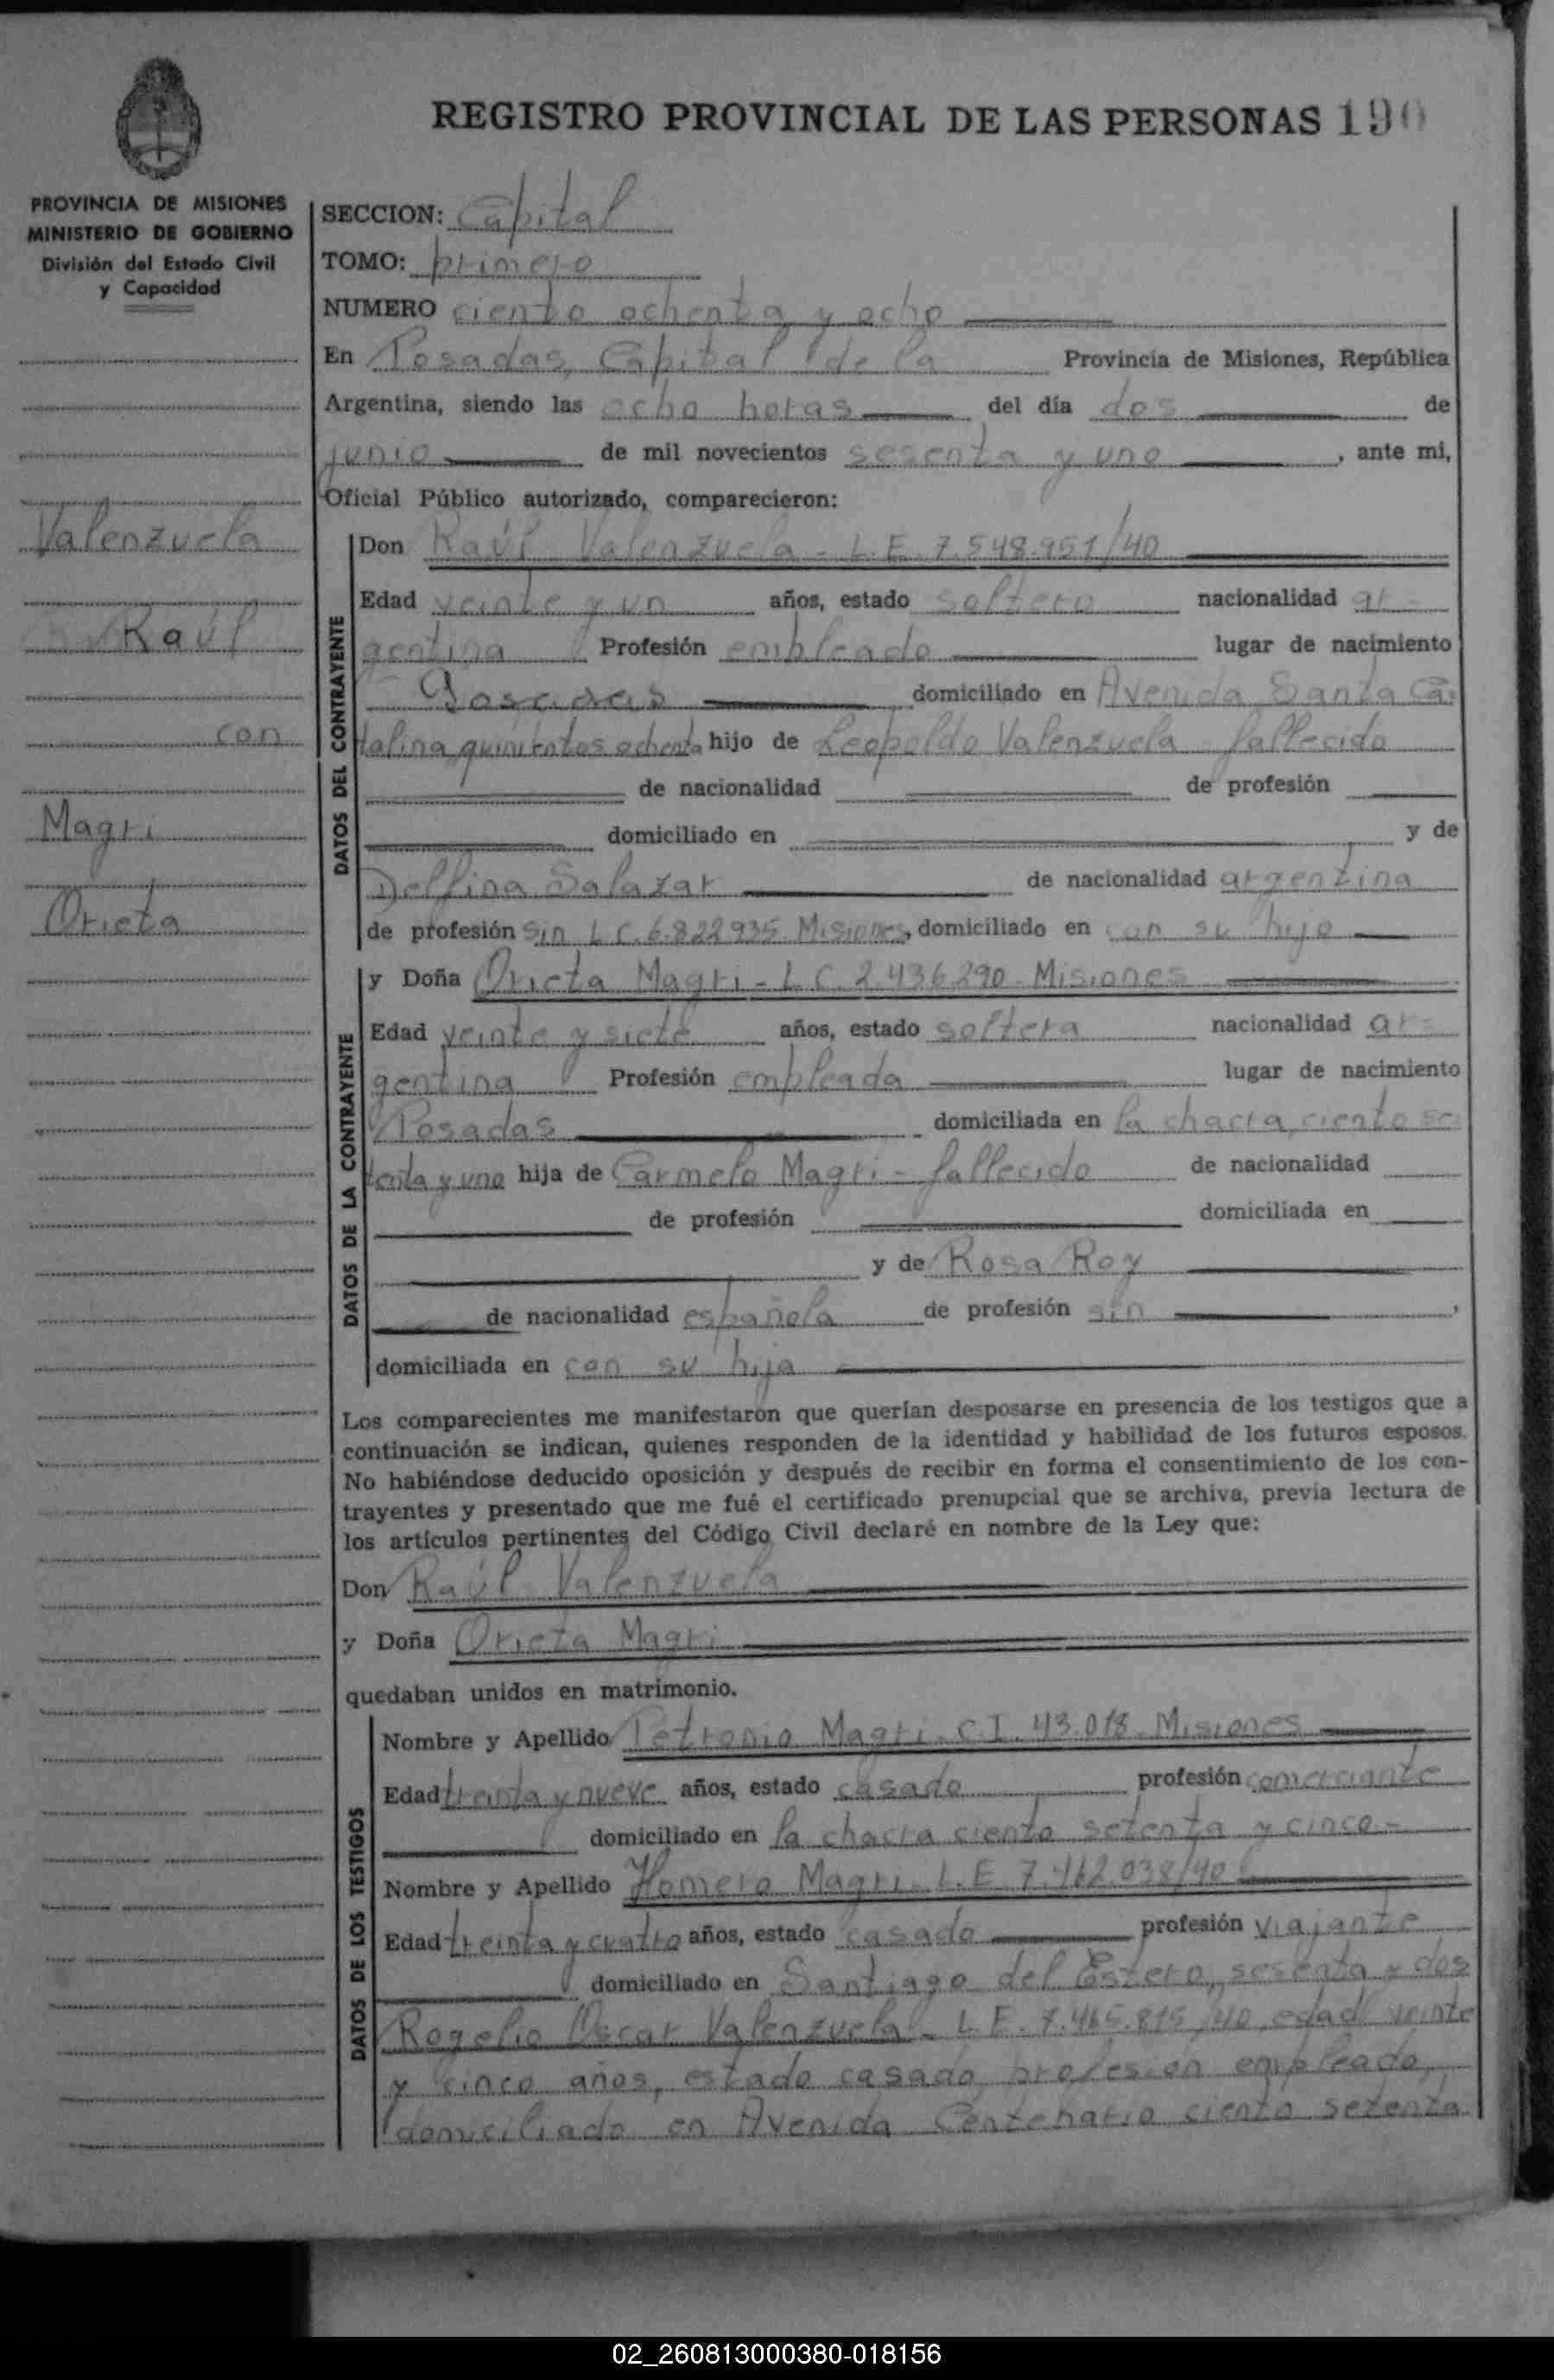 REGISTRO PROVINCIAL DE LAS PERSONAS 190
PROVINCIA DE MISIONES
MINISTERIO DE GOBIERNO
División del Estado Civil
y Capacidad
Valenzuela
Raúl
con
Magri
Orieta
SECCION: Capital
TOMO: primero
NUMERO ciento ochenta y ocho
En Posadas, Capital de la Provincia de Misiones, República
Argentina, siendo las ocho horas del día dos de
junio de mil novecientos sesenta y uno, ante mi,
Oficial Público autorizado, comparecieron:
DATOS DEL CONTRAYENTE
Don Raúl Valenzuela - L.E. 7.548.951/40
Edad veinte y un años, estado soltero nacionalidad ar-
gentina Profesión empleado lugar de nacimiento
Posadas domiciliado en Avenida Santa Ca-
talina quinientos ochenta hijo de Leopoldo Valenzuela - fallecido
de nacionalidad de profesión
domiciliado en y de
Delfina Salazar de nacionalidad argentina
de profesión sin L.C. 6.822.935 Misiones, domiciliado en con su hijo
DATOS DE LA CONTRAYENTE
y Doña Orieta Magri - L.C. 2.436.290 - Misiones
Edad veinte y siete años, estado soltera nacionalidad ar-
gentina Profesión empleada lugar de nacimiento
Posadas domiciliada en la chacra, ciento se
tenta y uno hija de Carmelo Magri - fallecido de nacionalidad
de profesión domiciliada en
y de Rosa Roy
de nacionalidad española de profesión sin ,
domiciliada en con su hija
Los comparecientes me manifestaron que querían desposarse en presencia de los testigos que a
continuación se indican, quienes responden de la identidad y habilidad de los futuros esposos.
No habiéndose deducido oposición y después de recibir en forma el consentimiento de los con-
trayentes y presentado que me fué el certificado prenupcial que se archiva, previa lectura de
los artículos pertinentes del Código Civil declaré en nombre de la Ley que:
Don Raúl Valenzuela
y Doña Orieta Magri
quedaban unidos en matrimonio.
DATOS DE LOS TESTIGOS
Nombre y Apellido Petronio Magri - C.I. 43.018 - Misiones
Edad treinta y nueve años, estado casado profesión comerciante
domiciliado en la chacra ciento setenta y cinco -
Nombre y Apellido Homero Magri - L.E. 7.462.038/40
Edad treinta y cuatro años, estado casado profesión viajante
domiciliado en Santiago del Estero, sesenta y dos
Rogelio Oscar Valenzuela - L.E. 7.465.815/40, edad veinte
y cinco años, estado casado, profesión empleado,
domiciliado en Avenida Centenario ciento setenta
02_260813000380-018156